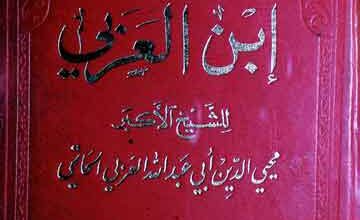 ابن العربي
للشيخ الأكبر
محيي الدين أبي عبد الله العربي الحاتمي